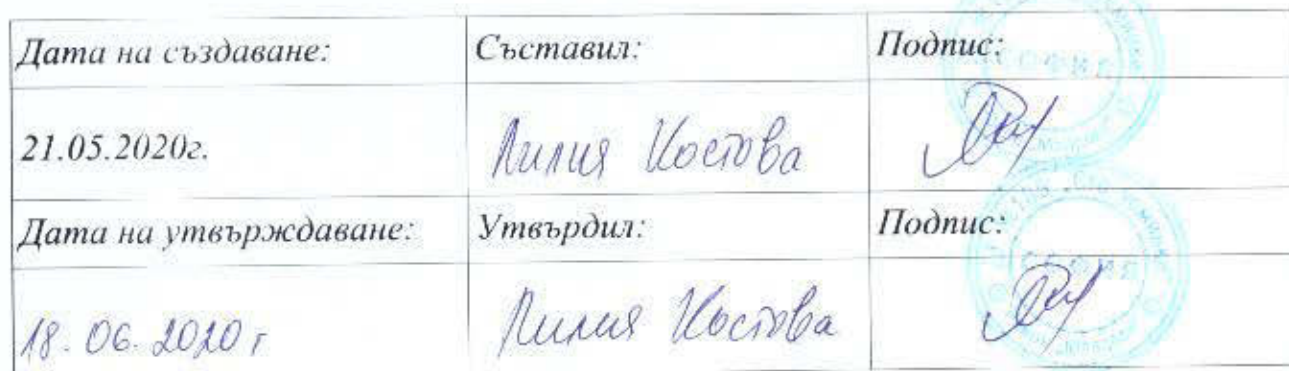 Дата на създаване: Съставил: Подпис:
21.05.2020г. Лилия Костова
Дата на утвърждаване: Утвърдил: Подпис:
18.06.2020г Лилия Костова
СОФИЯ
СОФИЯ